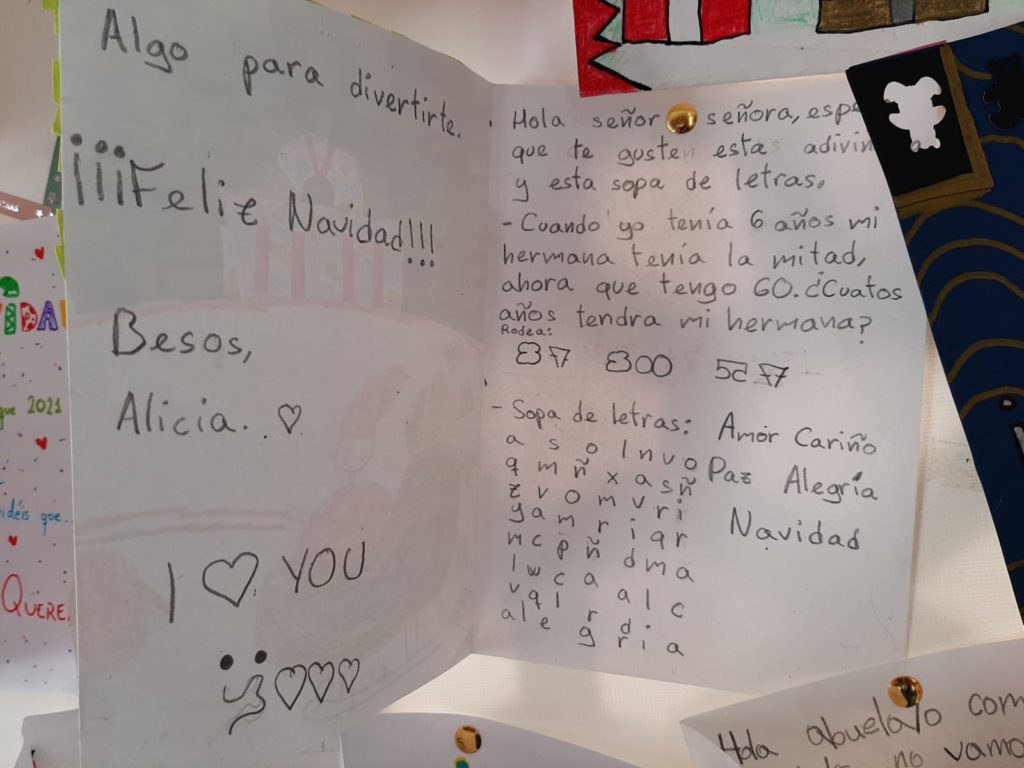 Algo para divertirte.
¡¡¡Feliz Navidad!!!
Besos,
Alicia.
I ♡ YOU
Hola señor señora,
que te gusten estas
y esta sopa de letras,
- Cuando yo tenía 6 años mi
hermana tenía la mitad,
ahora que tengo 60. ¿Cuatos
años tendra mi hermana?
Rodea:
87 800 57
- Sopa de letras: Amor Cariño
Paz Alegría
Navidad
a s o l n v o
q m ñ x a s ñ
z v o m v r i
y a m r i q r
m c p ñ d m a
l w c a a l c
v q l r d
a l e g r i a
gue 2021
idéis que...
QUERE
Hola abuela/o com
no vamo